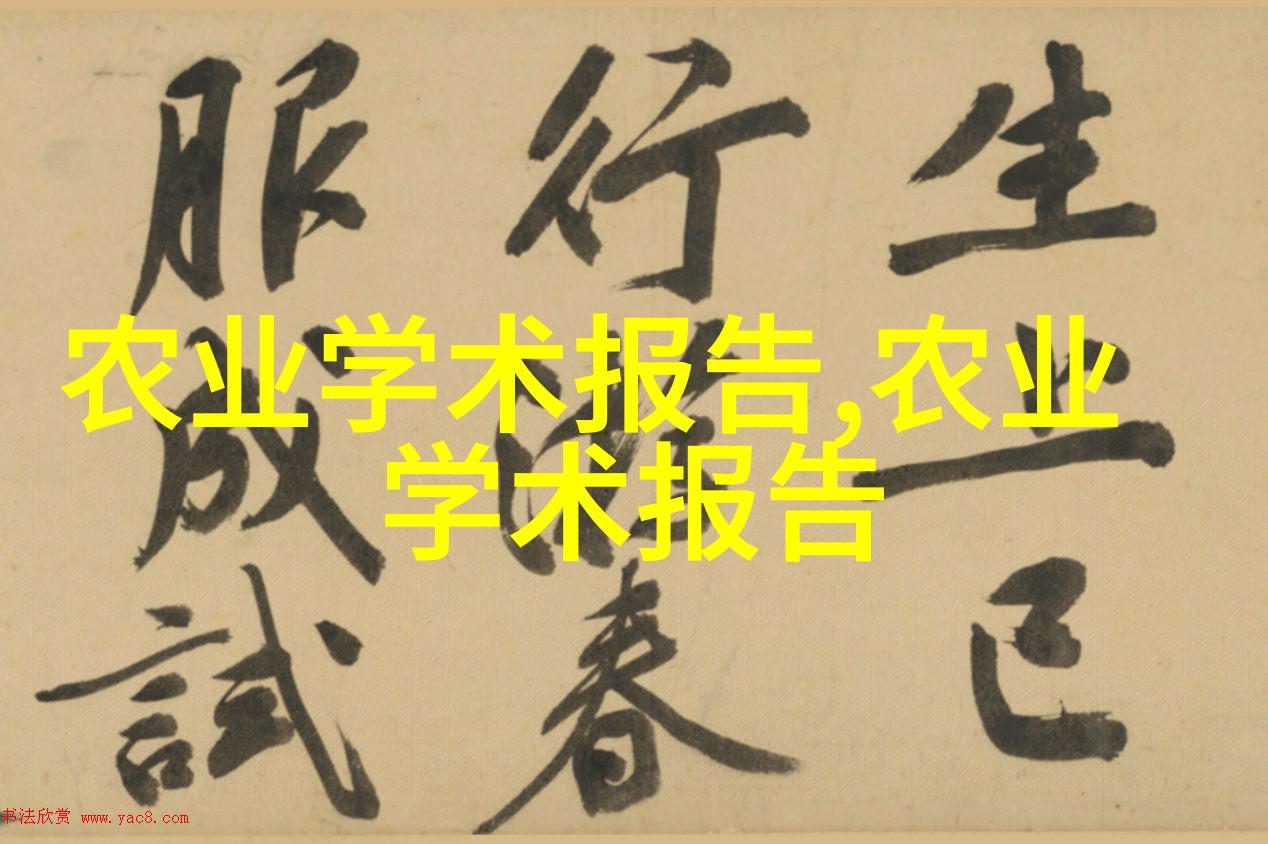 生上已
行春
服成試
农业学术报告,农业
学术报告
书法欣赏 www.yac8.com